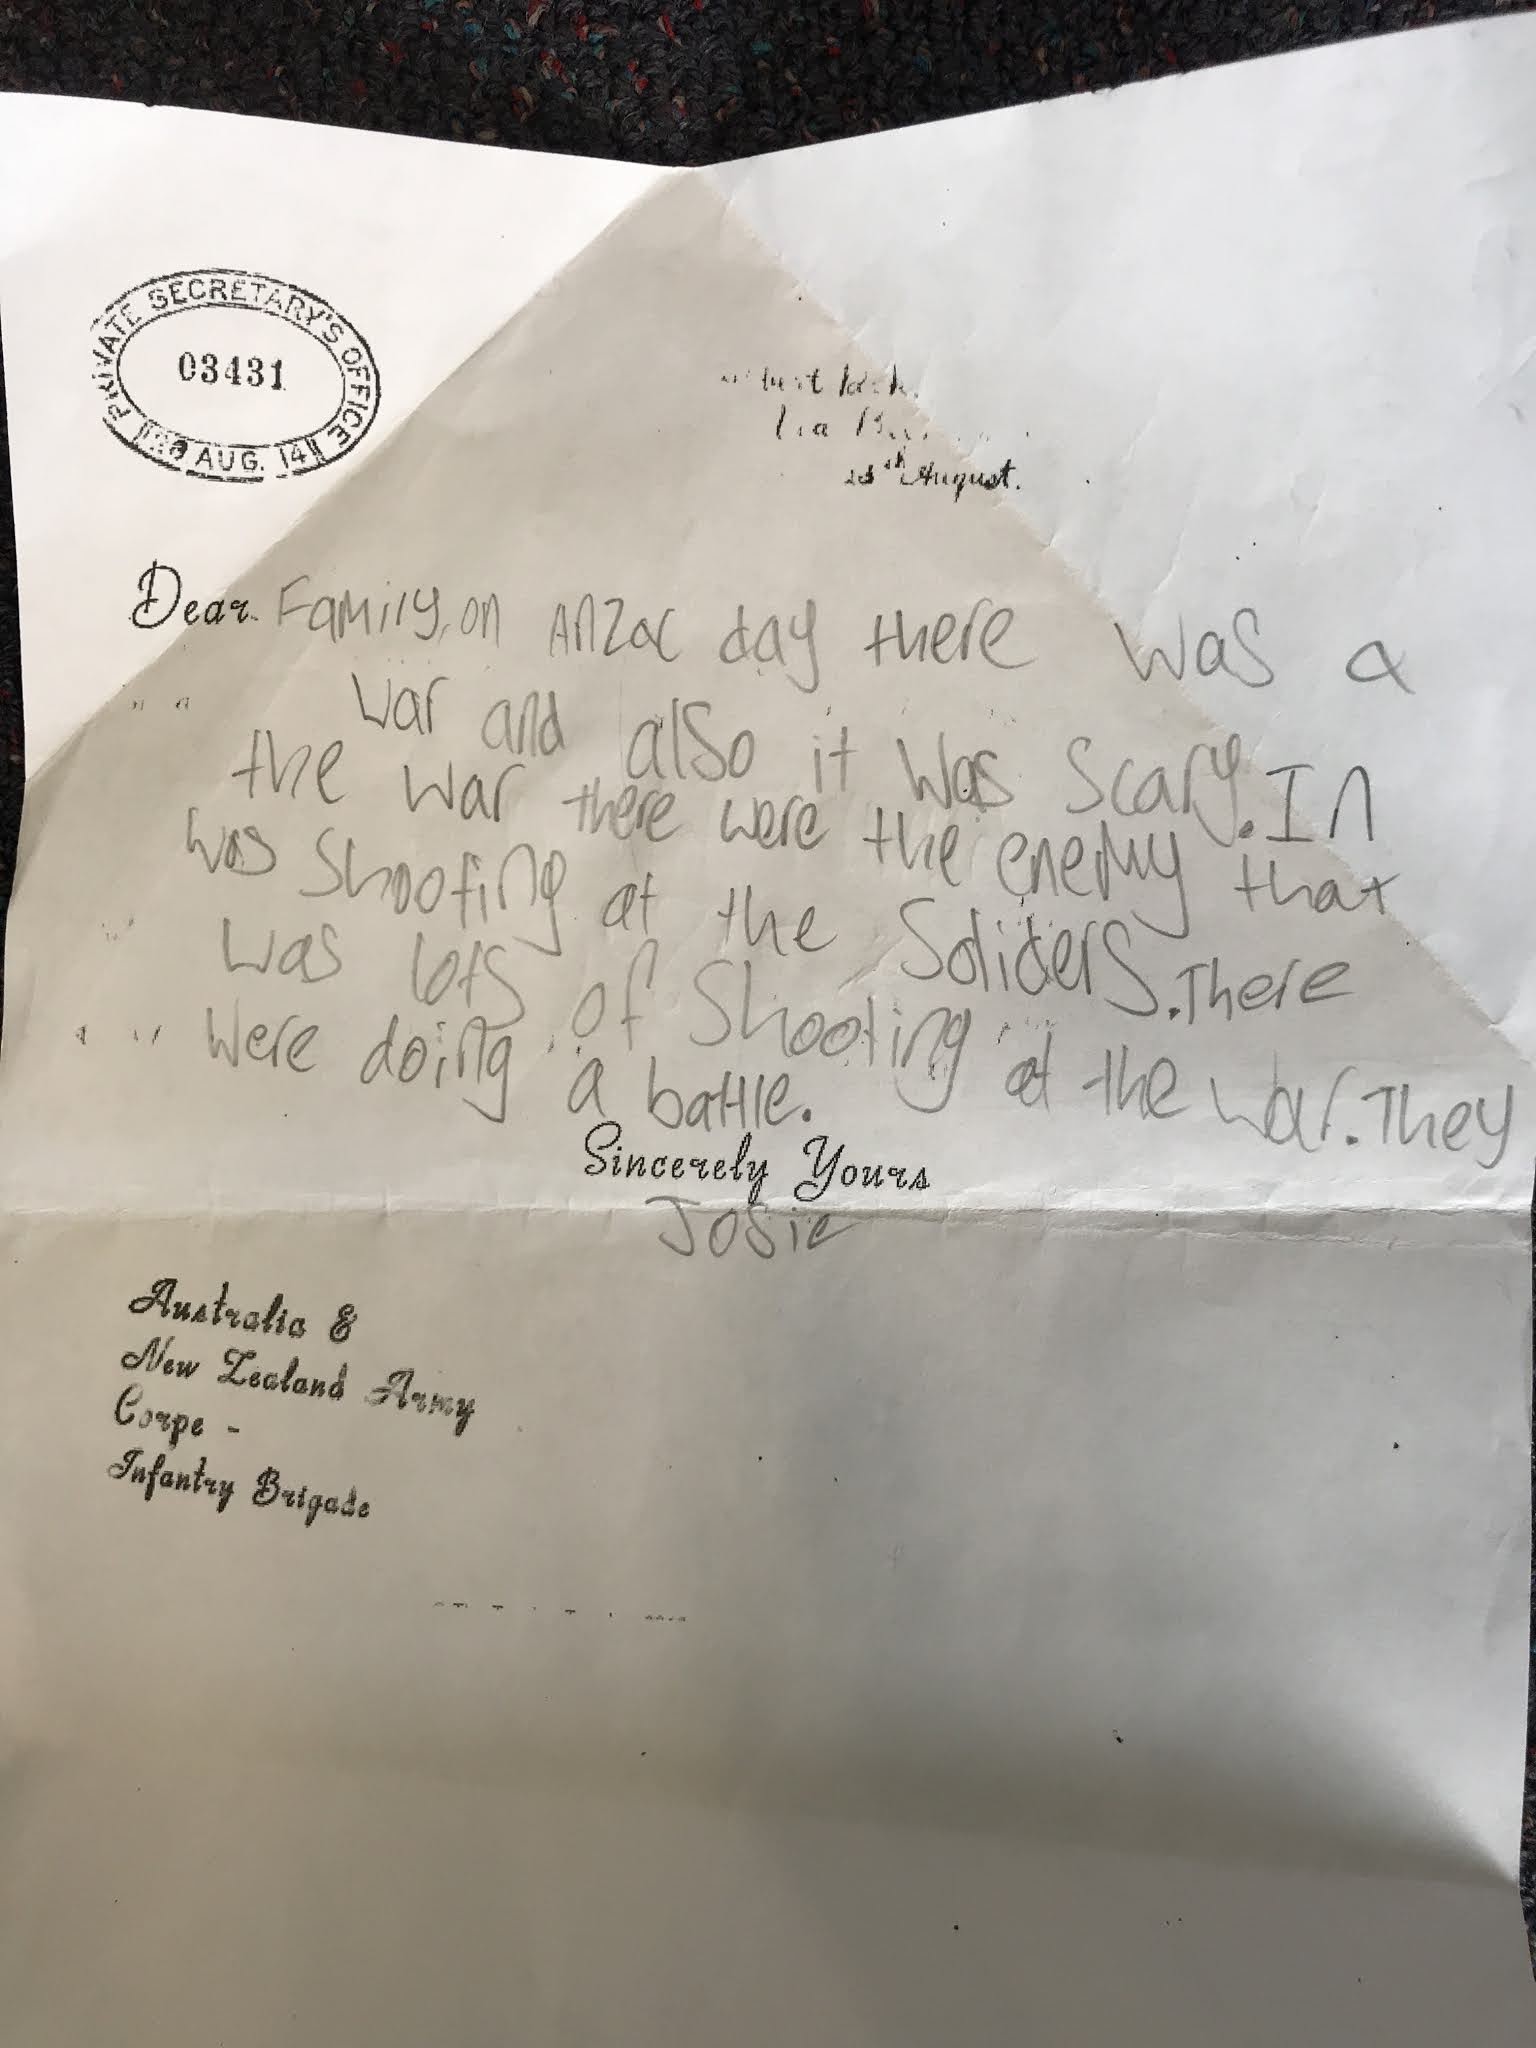 PRIVATE SECRETARY'S OFFICE
03431
AUG. 14
August.
Dear Family, on Anzac day there was a
war and also it was scary. In
the war there were the enemy that
was shooting at the Soliders. There
was lots of shooting at the war. They
were doing a battle.
Sincerely Yours
Josie
Australia &
New Zealand Army
Corpe -
Infantry Brigade